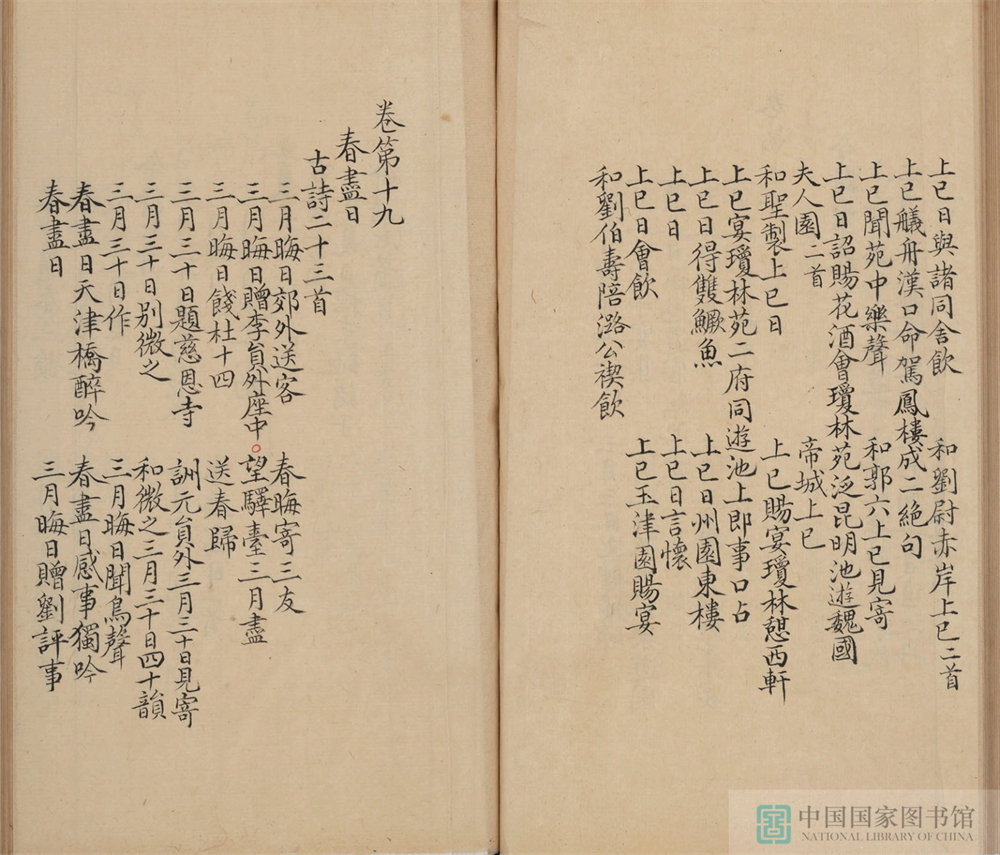 上巳日與諸同舍飲　和劉尉赤岸上巳二首
上巳艤舟漢口命駕鳳樓成二絕句
上巳聞苑中樂聲　和郭六上巳見寄
上巳日詔賜花酒會瓊林苑泛昆明池遊魏國
夫人園二首　帝城上巳
和聖製上巳日　上巳賜宴瓊林憇西軒
上巳宴瓊林苑二府同遊池上即事口占
上巳日得雙鱖魚　上巳日州園東樓
上巳日　上巳日言懷
上巳日會飲　上巳玉津園賜宴
和劉伯壽陪潞公禊飲
卷第十九
春盡日
古詩二十三首
三月晦日郊外送客　春晦寄三友
三月晦日贈李員外座中　望驛臺三月盡
三月晦日餞杜十四　送春歸
三月三十日題慈恩寺　詶元員外三月三十日見寄
三月三十日別微之　和微之三月三十日四十韻
三月三十日作　三月晦日聞鳥聲
春盡日天津橋醉吟　春盡日感事獨吟
春盡日　三月晦日贈劉評事
中国国家图书馆
NATIONAL LIBRARY OF CHINA